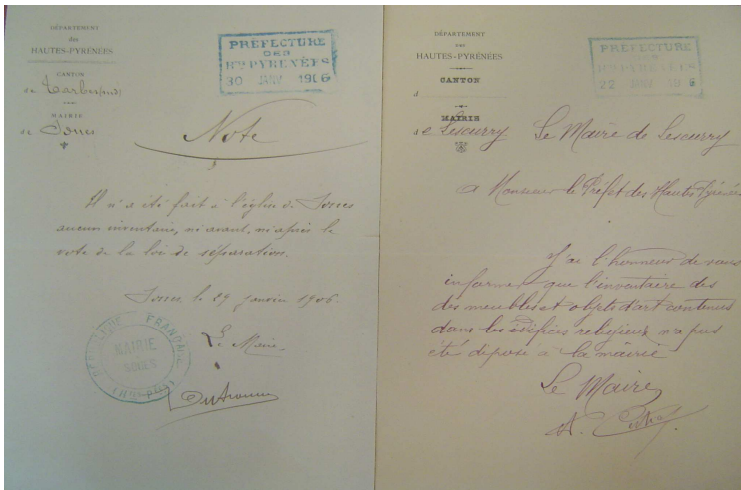 DÉPARTEMENT
des
HAUTES-PYRÉNÉES
CANTON
de Tarbes (sud)
MAIRIE
de Soues
PRÉFECTURE
DES
Htes PYRÉNÉES
30 JANV 1906
Note
Il n'a été fait à l'église de Soues
aucun inventaire, ni avant, ni après le
vote de la loi de séparation.
Soues le 29 janvier 1906.
Le Maire
MAIRIE
SOUES
DÉPARTEMENT
DES
HAUTES-PYRÉNÉES
CANTON
d
MAIRIE
de Lescurry
PRÉFECTURE
DES
Htes PYRÉNÉES
22
Le Maire de Lescurry
a Monsieur le Préfet des Hautes Pyrénées
J'ai l'honneur de vous
informer que l'inventaire des
des meubles et objets d'art contenus
dans les édifices religieux n'a pas
été déposé à la mairie
Le Maire